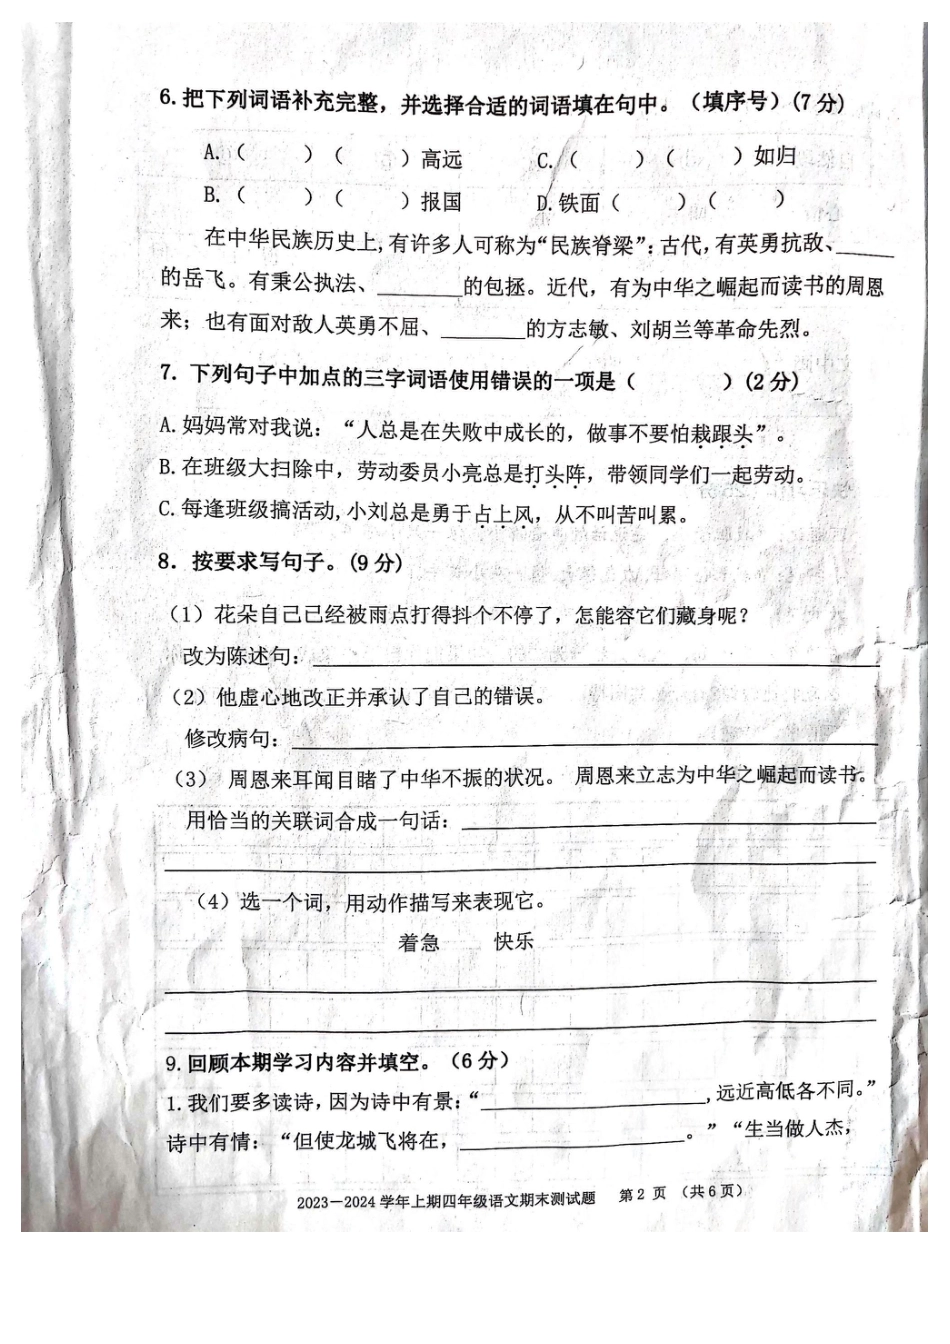 6.把下列词语补充完整，并选择合适的词语填在句中。（填序号）(7分)
A.（　　）（　　）高远　　C.（　　）（　　）如归
B.（　　）（　　）报国　　D.铁面（　　）（　　）
在中华民族历史上,有许多人可称为“民族脊梁”:古代,有英勇抗敌、_____
的岳飞。有秉公执法、_______的包拯。近代，有为中华之崛起而读书的周恩
来；也有面对敌人英勇不屈、_______的方志敏、刘胡兰等革命先烈。
7. 下列句子中加点的三字词语使用错误的一项是（　　）(2分)
A.妈妈常对我说：“人总是在失败中成长的，做事不要怕栽跟头”。
B.在班级大扫除中，劳动委员小亮总是打头阵，带领同学们一起劳动。
C.每逢班级搞活动,小刘总是勇于占上风，从不叫苦叫累。
8. 按要求写句子。(9分)
（1）花朵自己已经被雨点打得抖个不停了，怎能容它们藏身呢？
改为陈述句：____________________
（2）他虚心地改正并承认了自己的错误。
修改病句：____________________
（3） 周恩来耳闻目睹了中华不振的状况。 周恩来立志为中华之崛起而读书。
用恰当的关联词合成一句话：____________________
（4）选一个词，用动作描写来表现它。
着急　　快乐
9.回顾本期学习内容并填空。（6分）
1.我们要多读诗,因为诗中有景:“____________________,远近高低各不同。”
诗中有情：“但使龙城飞将在，____________________。”“生当做人杰，
2023—2024学年上期四年级语文期末测试题　第2页（共6页）